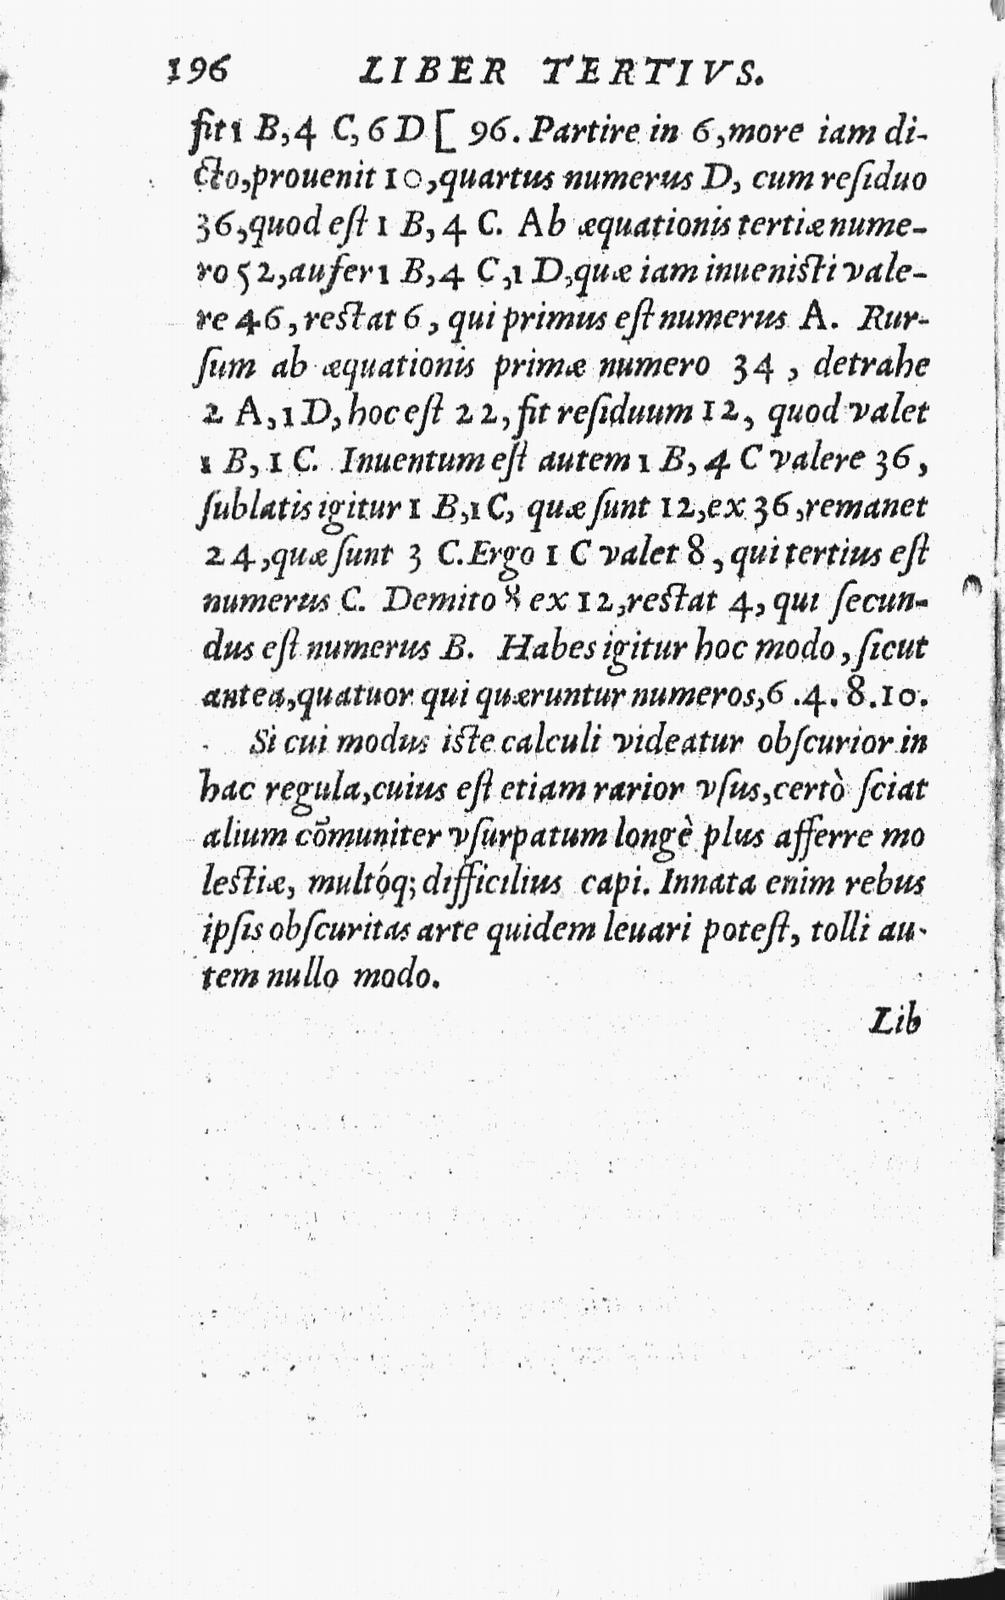 196 LIBER TERTIVS.
fit 1 B, 4 C, 6 D [ 96. Partire in 6, more iam di-
cto, prouenit 10, quartus numerus D, cum reſiduo
36, quod eſt 1 B, 4 C. Ab æquationis tertiæ nume-
ro 52, aufer 1 B, 4 C, 1 D, quæ iam inueniſti vale-
re 46, reſtat 6, qui primus eſt numerus A. Rur-
ſum ab æquationis primæ numero 34, detrahe
2 A, 1 D, hoc eſt 22, fit reſiduum 12, quod valet
1 B, 1 C. Inuentum eſt autem 1 B, 4 C valere 36,
ſublatis igitur 1 B, 1 C, quæ ſunt 12, ex 36, remanet
24, quæ ſunt 3 C. Ergo 1 C valet 8, qui tertius eſt
numerus C. Demito 8 ex 12, reſtat 4, qui ſecun-
dus eſt numerus B. Habes igitur hoc modo, ſicut
antea, quatuor qui quæruntur numeros, 6. 4. 8. 10.
Si cui modus iſte calculi videatur obſcurior in
hac regula, cuius eſt etiam rarior vſus, certò ſciat
alium cōmuniter vſurpatum longè plus afferre mo
leſtiæ, multóq; difficilius capi. Innata enim rebus
ipſis obſcuritas arte quidem leuari poteſt, tolli au-
tem nullo modo.
Lib